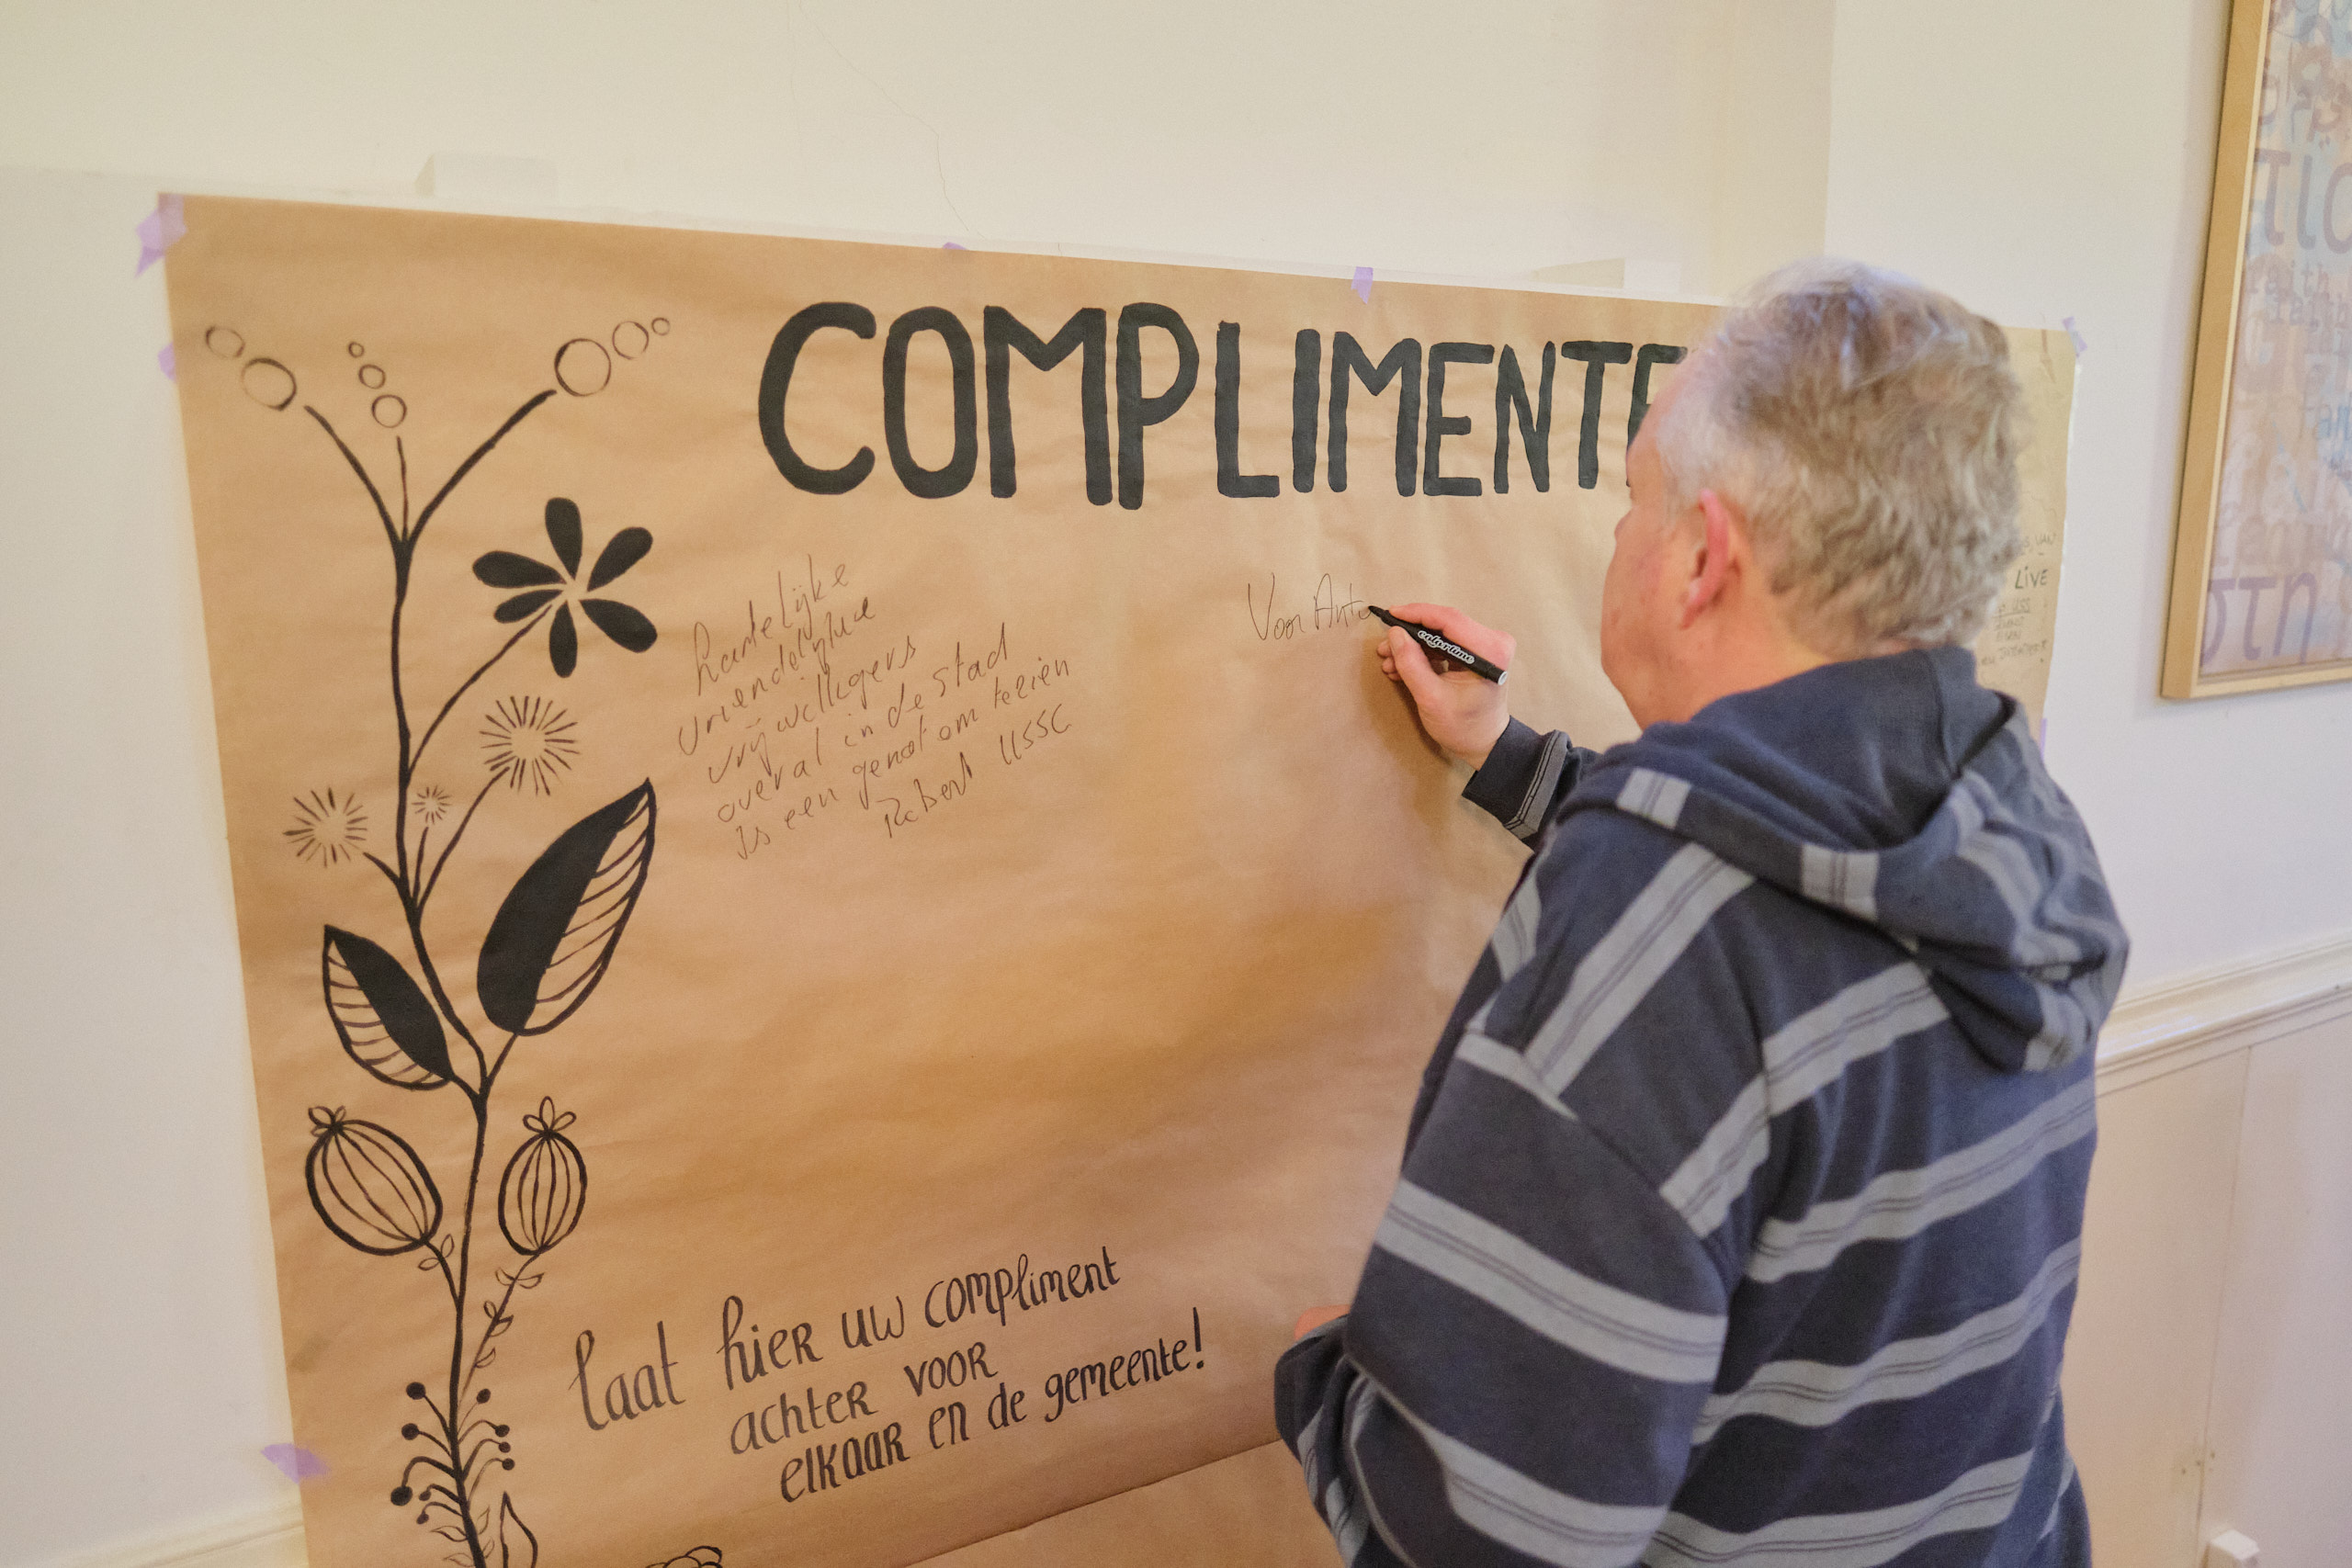 COMPLIMENTE
hartelijke
vriendelijke
vrijwilligers
overal in de stad
Is een genot om te zien
Robert USSC
Voor Anto
colortime
laat hier uw compliment
achter voor
elkaar en de gemeente!
VAN
LIVE